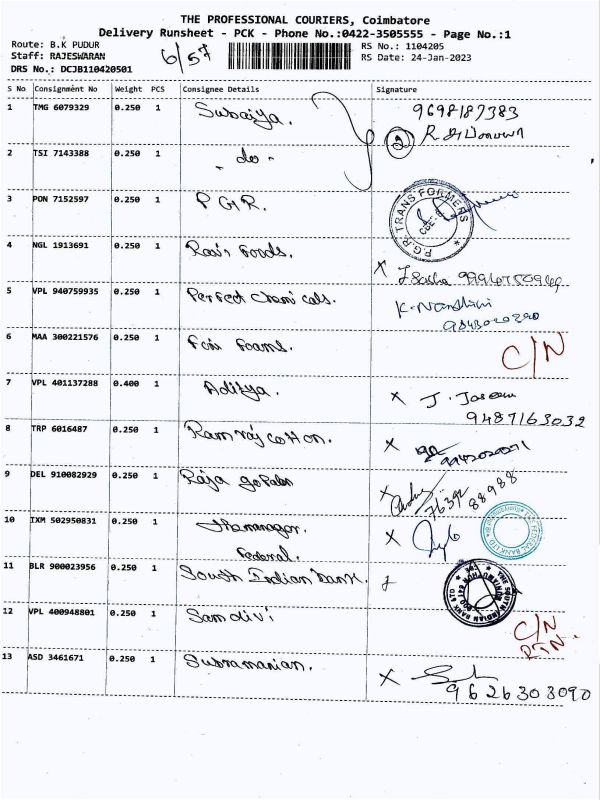 THE PROFESSIONAL COURIERS, Coimbatore
Delivery Runsheet - PCK - Phone No.:0422-3505555 - Page No.:1
Route: B.K PUDUR
6/57
RS No.: 1104205
Staff: RAJESWARAN
RS Date: 24-Jan-2023
DRS No.: DCJB110420501
S No Consignment No Weight PCS Consignee Details Signature
1 TMG 6079329 0.250 1 Subaiya. 9698187383
2 R
2 TSI 7143388 0.250 1 - do -
3 PON 7152597 0.250 1 P G R. P.G.R. TRANSFORMERS CBE
4 NGL 1913691 0.250 1 Ravi Foods. X
5 VPL 940759935 0.250 1 Perfect Chemicals. K. Nandhini
6 MAA 300221576 0.250 1 Foams. C/N
7 VPL 401137288 0.400 1 Aditya. X J.
9487163032
8 TRP 6016487 0.250 1 Ramraj cotton. X
9 DEL 910082929 0.250 1 Raja gopalan X
88988
10 IXM 502950831 0.250 1 X THE FEDERAL BANK LTD
Federal.
11 BLR 900023956 0.250 1 South Indian bank. THE SOUTH INDIAN BANK LTD
12 VPL 400948801 0.250 1 Samdivi C/N
RTN.
13 ASD 3461671 0.250 1 Subramanian. X
9626303090